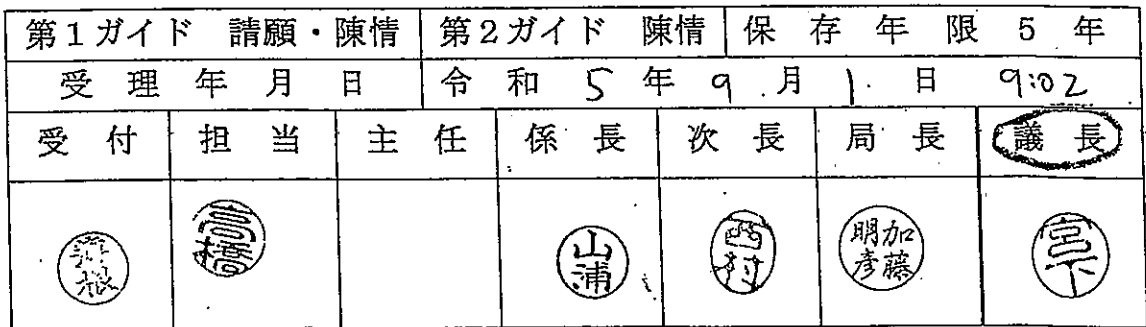 第1ガイド 請願・陳情 第2ガイド 陳情 保存年限 5年
受理年月日 令和 5 年 9 月 1 日 9:02
受付 担当 主任 係長 次長 局長 議長
高橋 山浦 西村 加藤明彦 宮下